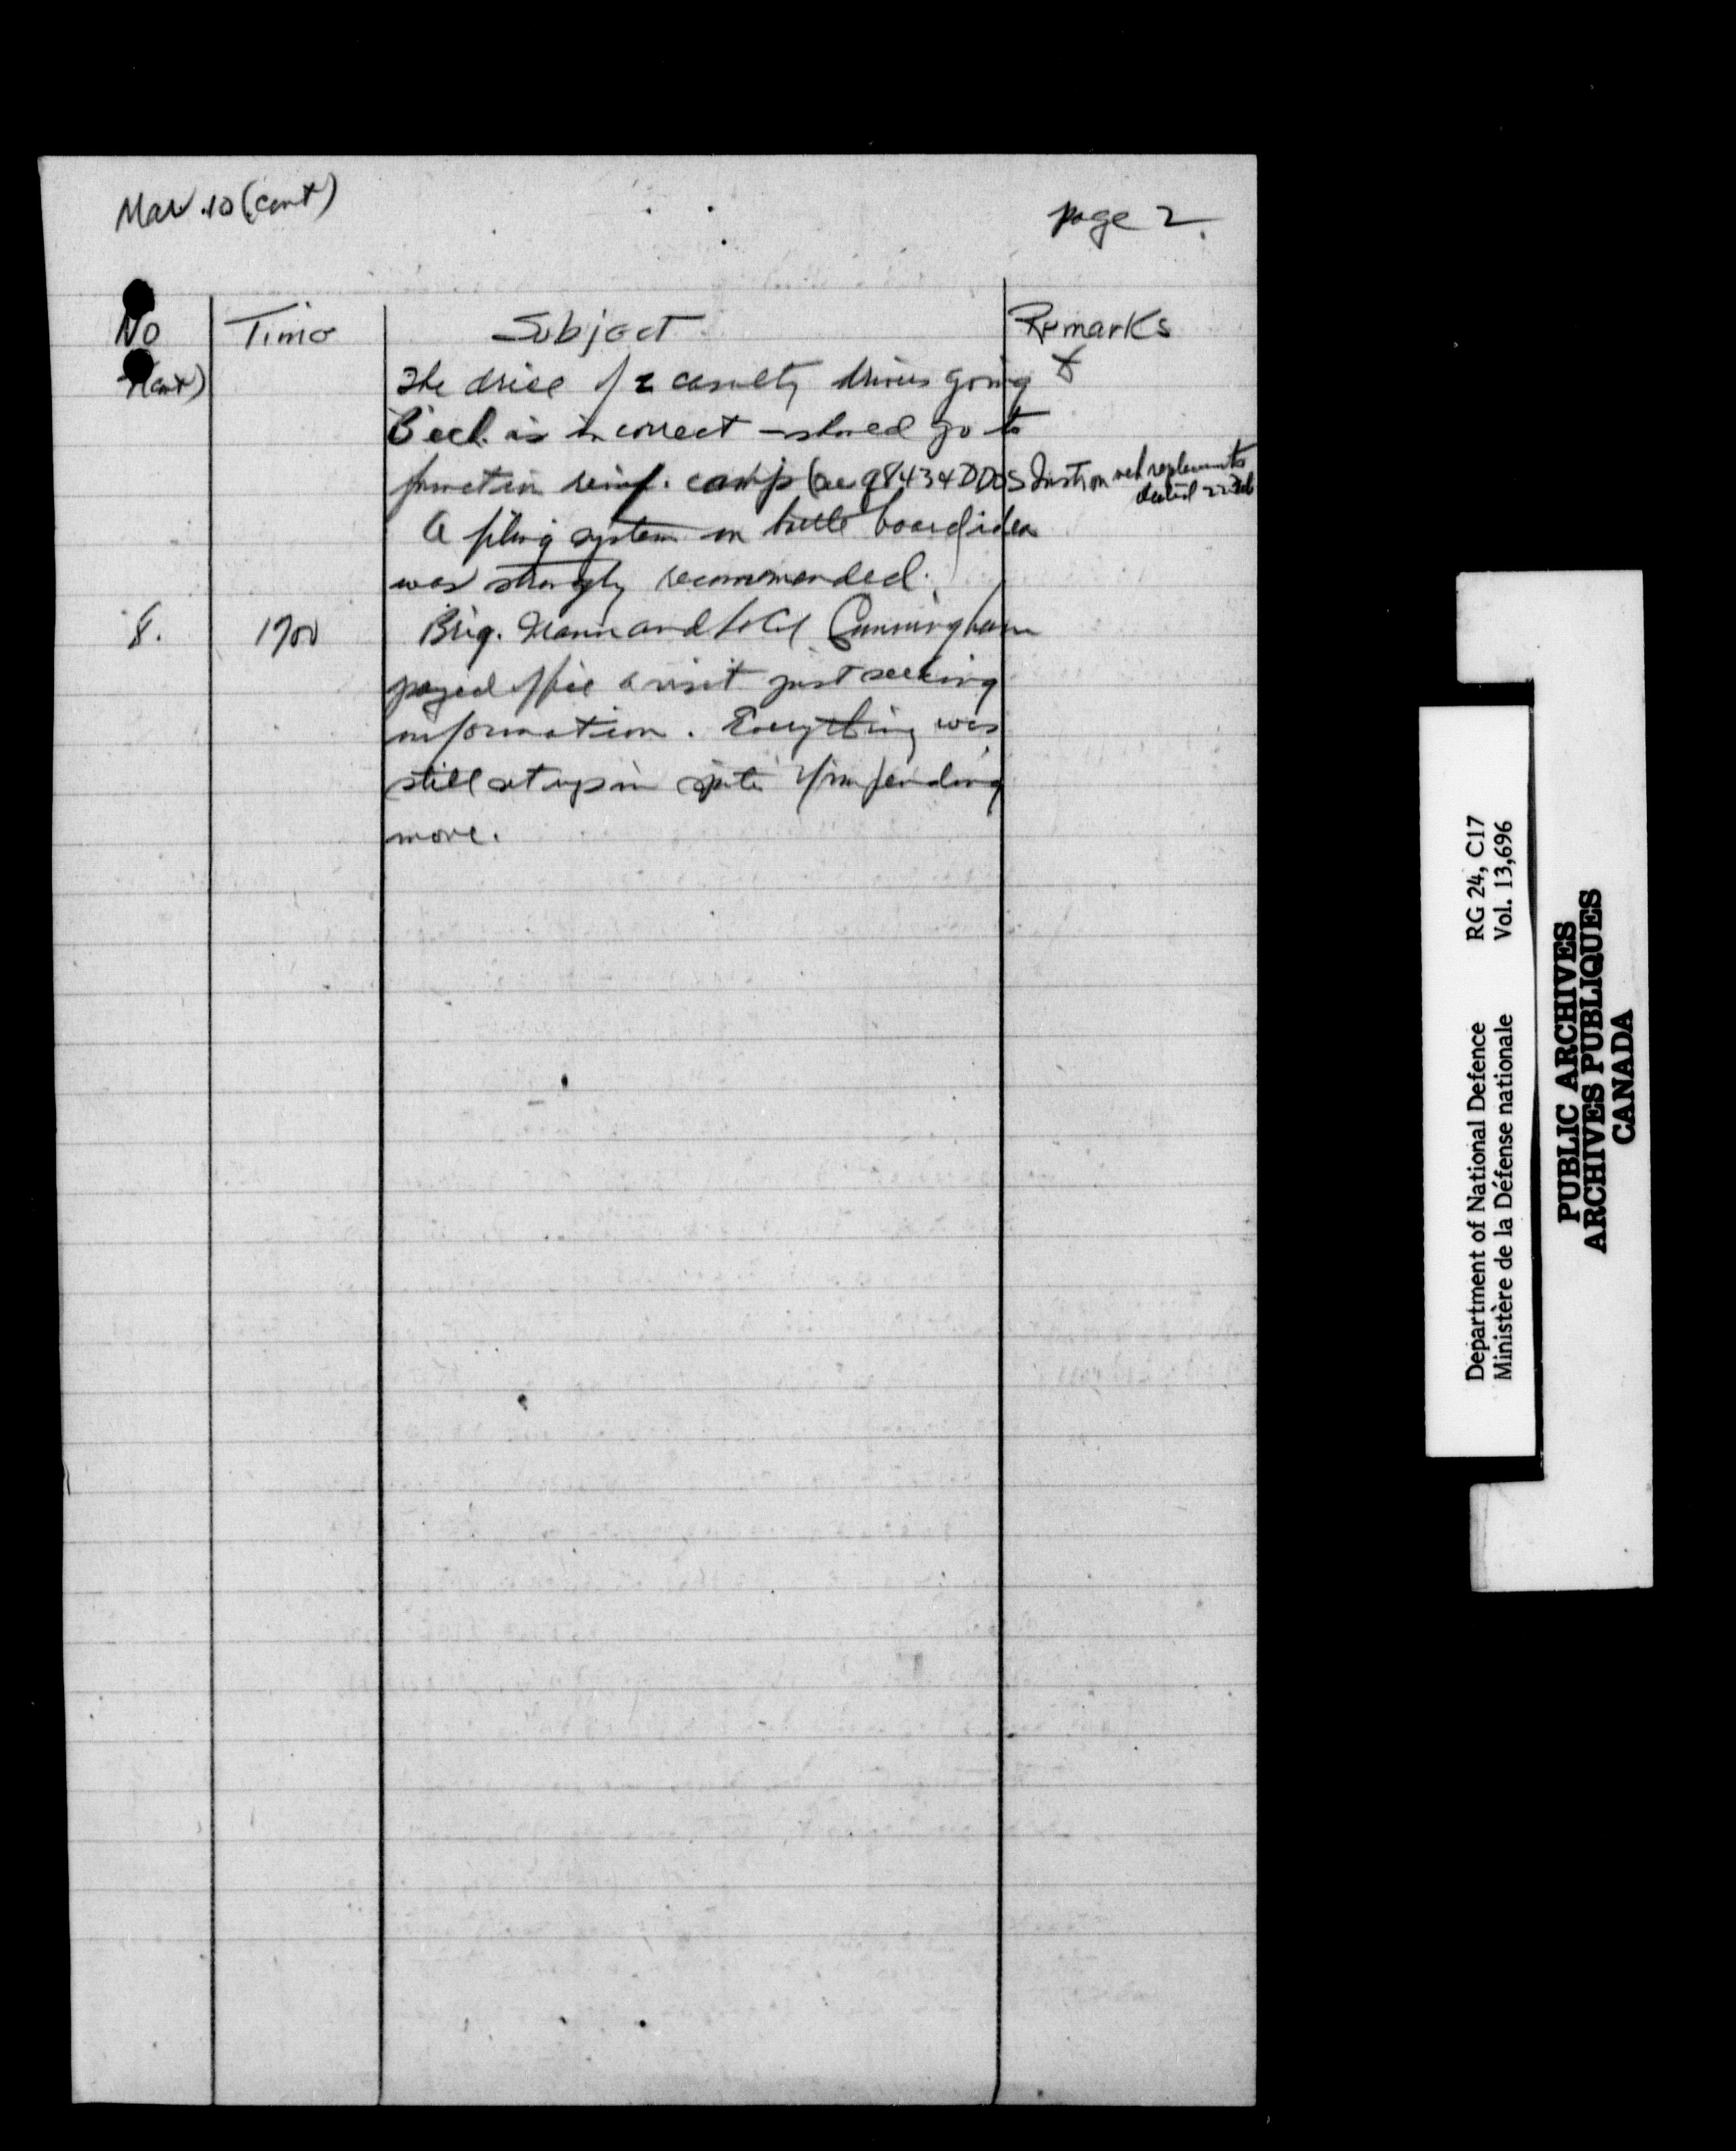 Mar. 10 (cont)
page 2.
No Time Subject Remarks
7(cont) The drill of casualty drivers going to
B ech. is incorrect - should go to
junction reinf. camp (see 98434 DDOS Instr on veh replacements
dated 22 Feb
A filing system on board idea
was strongly recommended.
8. 1700 Brig. Mann and Lt Col Cunningham
payed office a visit just seeking
information. Everything was
still set up in spite of impending
move.
Department of National Defence RG 24, C17
Ministère de la Défense nationale Vol. 13,696
PUBLIC ARCHIVES
ARCHIVES PUBLIQUES
CANADA